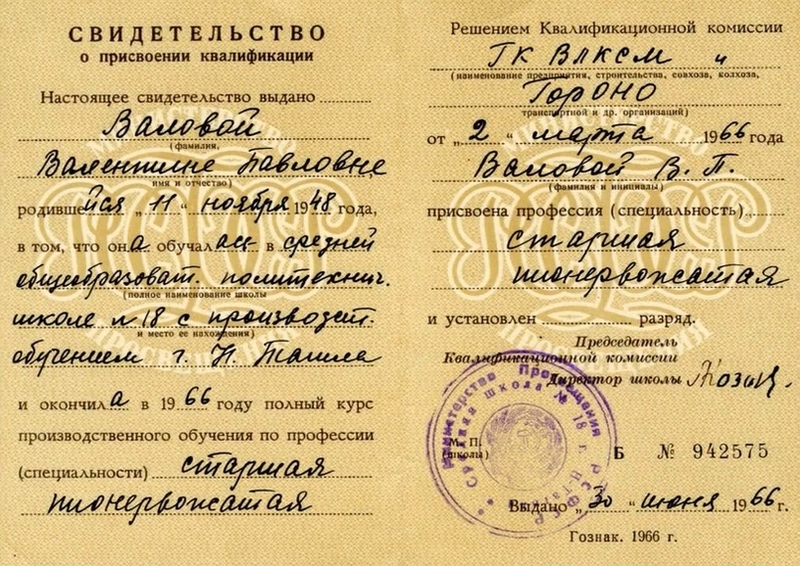 СВИДЕТЕЛЬСТВО
о присвоении квалификации
Настоящее свидетельство выдано
Валовой
(фамилия,
Валентине Павловне
имя и отчество)
родившейся „11" ноября 1948 года,
в том, что она обучалась в средней
общеобразоват. политехнич.
(полное наименование школы
школе №18 с производст.
и место ее нахождения)
обучением г. Н. Тагила
и окончила в 1966 году полный курс
производственного обучения по профессии
(специальности) старшая
пионервожатая
Решением Квалификационной комиссии
ГК ВЛКСМ и
(наименование предприятия, строительства, совхоза, колхоза,
ГорОНО
транспортной и др. организаций)
от „2" марта 1966 года
Валовой В. П.
(фамилия и инициалы)
присвоена профессия (специальность)
старшая
пионервожатая
и установлен разряд.
Председатель
Квалификационной комиссии
Директор школы
М. П.
(школы)
Б № 942575
Выдано „30" июня 1966 г.
Гознак. 1966 г.
Министерство Просвещения РСФСР
Средняя школа № 18 г.